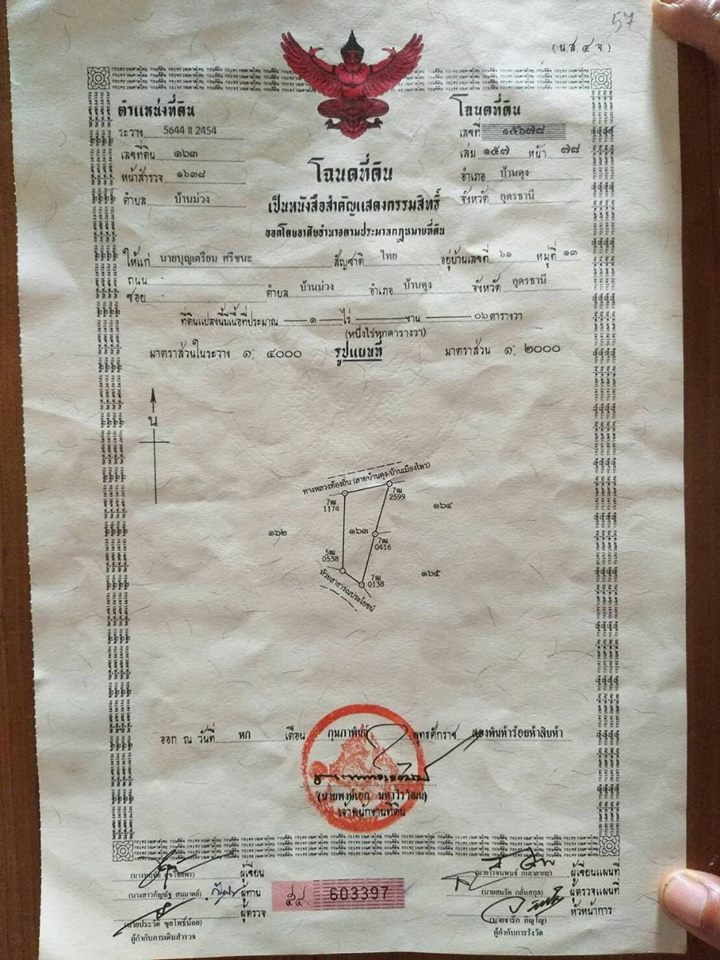 57
(น.ส.๔ จ)
ตำแหน่งที่ดิน
ระวาง 5644 II 2454
เลขที่ดิน ๑๖๓
หน้าสำรวจ ๑๖๓๘
ตำบล บ้านม่วง
โฉนดที่ดิน
เลขที่ ๑๕๖๗๘
เล่ม ๑๕๗ หน้า ๗๘
อำเภอ บ้านดุง
จังหวัด อุดรธานี
โฉนดที่ดิน
เป็นหนังสือสำคัญแสดงกรรมสิทธิ์
ออกโดยอาศัยอำนาจตามประมวลกฎหมายที่ดิน
ให้แก่ นายบุญเตรียม ศรีชนะ สัญชาติ ไทย อยู่บ้านเลขที่ ๖๑ หมู่ที่ ๑๓
ถนน -
ซอย - ตำบล บ้านม่วง อำเภอ บ้านดุง จังหวัด อุดรธานี
ที่ดินแปลงนี้มีเนื้อที่ประมาณ ๑ ไร่ — งาน ๐๖ ตารางวา
(หนึ่งไร่หกตารางวา)
มาตราส่วนในระวาง ๑: ๔๐๐๐ รูปแผนที่ มาตราส่วน ๑: ๒๐๐๐
น
ทางหลวงท้องถิ่น (สายบ้านดุง-บ้านเมืองไพร)
7ฒ 1174
7ฒ 2599
๑๖๒
๑๖๓
๑๖๔
7ฒ 0416
5ฒ 0538
7ฒ 0138
๑๖๕
ห้วยสาธารณประโยชน์
ออก ณ วันที่ หก เดือน กุมภาพันธ์ พุทธศักราช สองพันห้าร้อยห้าสิบห้า
(นายพงษ์เอก มหาวีรวัฒน์)
เจ้าพนักงานที่ดิน
ผู้เขียน
ผู้ทาน
ผู้ตรวจ
ผู้กำกับการเดินสำรวจ
603397
ผู้เขียนแผนที่
ผู้ตรวจแผนที่
หัวหน้าการ
ผู้กำกับการรังวัด